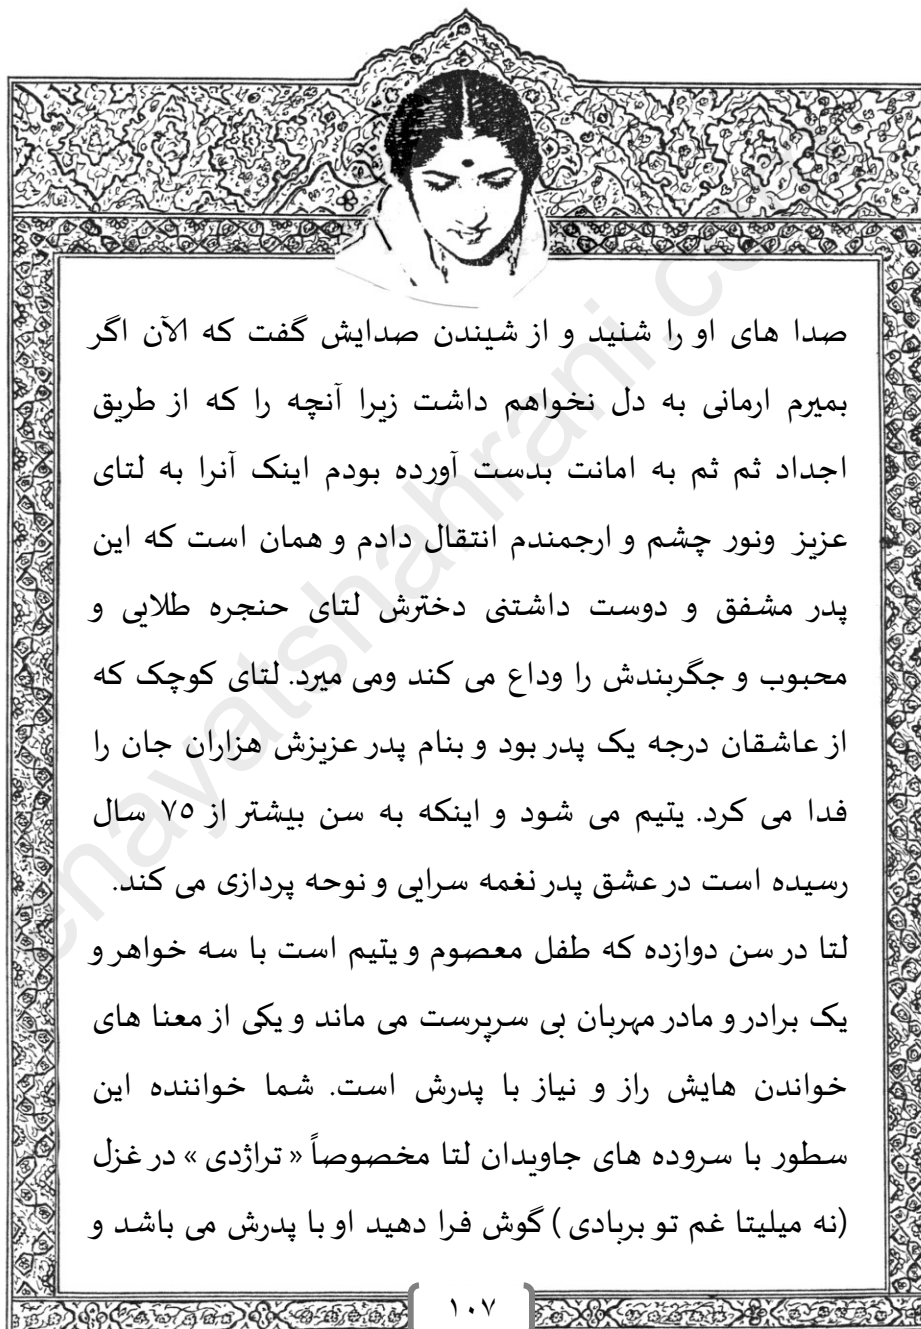 صدا های او را شنید و از شیندن صدایش گفت که الآن اگر
بمیرم ارمانی به دل نخواهم داشت زیرا آنچه را که از طریق
اجداد ثم ثم به امانت بدست آورده بودم اینک آنرا به لتای
عزیز ونور چشم و ارجمندم انتقال دادم و همان است که این
پدر مشفق و دوست داشتنی دخترش لتای حنجره طلایی و
محبوب و جگربندش را وداع می کند ومی میرد. لتای کوچک که
از عاشقان درجه یک پدر بود و بنام پدر عزیزش هزاران جان را
فدا می کرد. یتیم می شود و اینکه به سن بیشتر از ۷۵ سال
رسیده است در عشق پدر نغمه سرایی و نوحه پردازی می کند.
لتا در سن دوازده که طفل معصوم و یتیم است با سه خواهر و
یک برادر و مادر مهربان بی سرپرست می ماند و یکی از معنا های
خواندن هایش راز و نیاز با پدرش است. شما خواننده این
سطور با سروده های جاویدان لتا مخصوصاً « تراژدی » در غزل
(نه میلیتا غم تو بربادی ) گوش فرا دهید او با پدرش می باشد و
۱۰۷
enayatshahrani.com